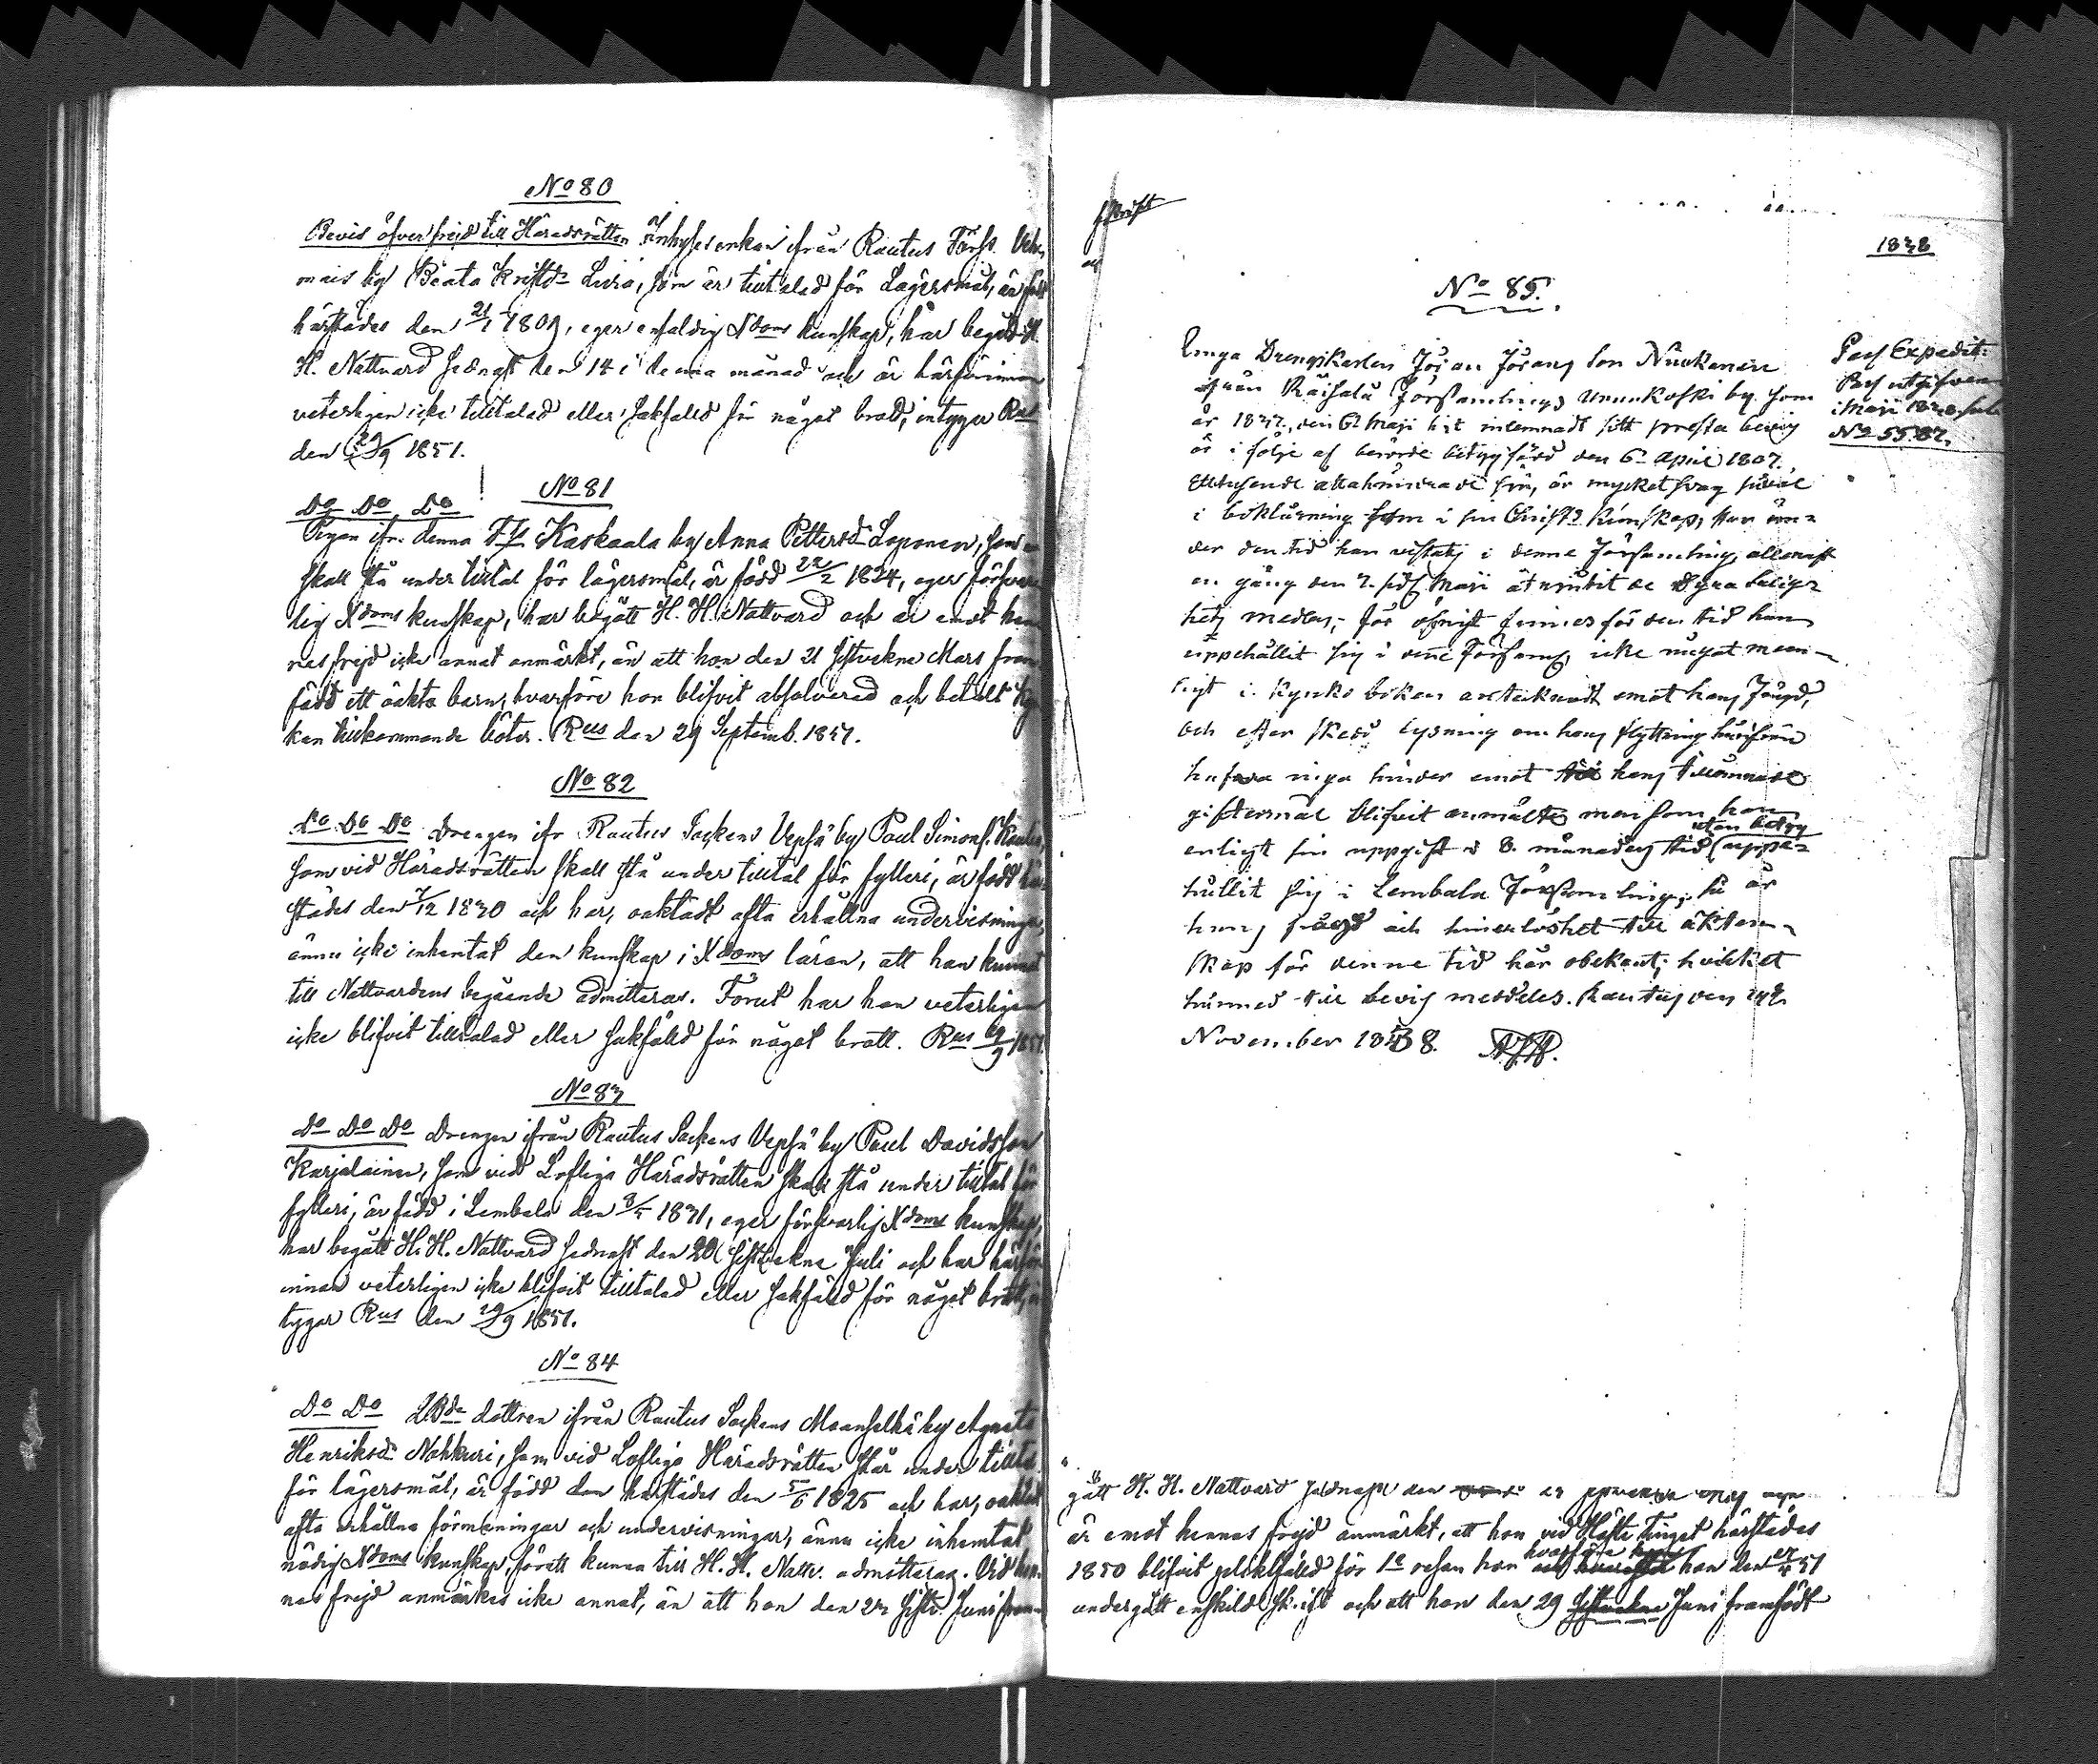 No 80
Bevis öfver frejd till Häradsrätten Inhyses enkan ifrån Rautus Förs.
mais by Beata Kristdr Livia, som är tilltalad för Lägersmål, är född
härstädes den 21/1 1809, eger enfaldig Xdoms kunskap, har begått H.
H. Nattvard sednast den 14 i denna månad och är härförinnan
veterligen icke tilltalad eller sakfälld för något brott, intygar Rus
den 29/9 1851.
No 81
Do Do Do
Pigan ifr. denna Kaskaala by Anna Pettersdr Loponen, som
skall stå under tilltal för lägersmål, är född 22/2 1824, eger försvar
lig Xdoms kunskap, har begått H. H. Nattvard och är emot hen
nes frejd icke annat anmärkt, än att hon den 21 sistvekne Mars fram
födt ett oäkta barn, hvarföre hon blifvit absolverad och betalt kyr
kan tillkommande böter. Rus den 29 Septemb. 1851.
No 82
Do Do Do Drengen ifr Rautus Sockens Vepsä by Paul Simons.
som vid Häradsrätten skall stå under tilltal för fylleri, är född här
städes den 7/12 1830 och har, oaktadt ofta erhållna undervisningar,
ännu icke inhentat den kunskap i Xdoms läran, att han kunnat
till Nattvardens begående admitteras. Förut har han veterligen
icke blifvit tilltalad eller sakfälld för något brott. Rus 29/9 1851.
No 83
Do Do Do Drengen ifrån Rautus Sockens Vepsä by Paul Davidsson
Karjalainen, som vid Lofliga Häradsrätten skall stå under tilltal för
fylleri, är född i Lembala den 1831, eger försvarlig Xdoms kunskap,
har begått H. H. Nattvard sednast den 20 sistvekne Juli och har härför
innan veterligen icke blifvit tilltalad eller sakfälld för något brott, in
tygar Rus den 29/9 1851.
No 84
Do Do dottren ifrån Rautus Sockens Maanselkä by Agneta
Henriksdr Nahkuri, som vid Lofliga Häradsrätten står under tilltal
för lägersmål, är född den härstädes den 5/6 1825 och har, oaktadt
ofta erhållna förmaningar och undervisningar, ännu icke inhemtat
nödig Xdoms kunskap, för att kunna till H. H. Nattv. admitteras. Vid hen
nes frejd anmärkes icke annat, än att hon den sistv. Juni fram
1838
No 85.
Unga Drengkarlen Jöran Jörans Son
ifrån Räisälä Församlings Unnunkoski by som
år 1837, den Maji hit inlemnadt sitt presta bevis
är i följe af berörde betyg född den 6te April 1807.
Ettusende åttahundrade sju, är mycket svag såväl
i boklärning som i sin Christd. kunskap, har un-
der den tid han vistats i denne församling, allenast
en gång den Maji åtnjutit de dyra Salig-
hets medlen; för öfrigt finnes för den tid han
uppehållit sig i denne Förs. icke något men-
ligt i Kyrko boken antecknadt emot hans frejd,
och efter skedd lysning om hans flyttning härifrån
hafva inga hinder emot hans tillämnade
giftermål blifvit anmälte men som han
utan betyg
enligt sin uppgift i 8. månaders tid uppe-
hållit sig i Lembala Församling, så är
hans frejd och hinderlöshet till äkten-
skap för denne tid här obekant; hvilket
härmed till bevis meddeles. Rautus den
November 1838.
Pass Expedit:
Pass utgifven
i Maji
No 5587.
gått H. H. Nattvard sednast den
är emot hennes frejd anmärkt, att hon vid Höste Tinget härstädes
hvarföre
1850 blifvit plikfälld för 1a resan hor hon den 51
undergått enskild skrift och att hon den 29 sistvekne Juni framfödt